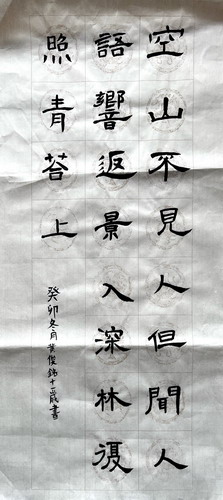 空山不見人但聞人
語響返景入深林復
照青苔上
癸卯冬月 俊 十一歲書